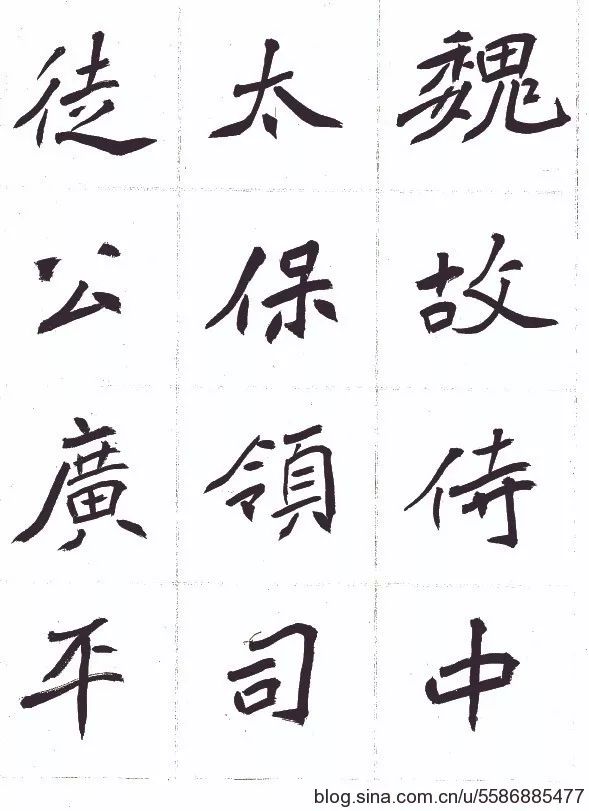 魏故侍中
太保領司
徒公廣平
blog.sina.com.cn/u/5586885477